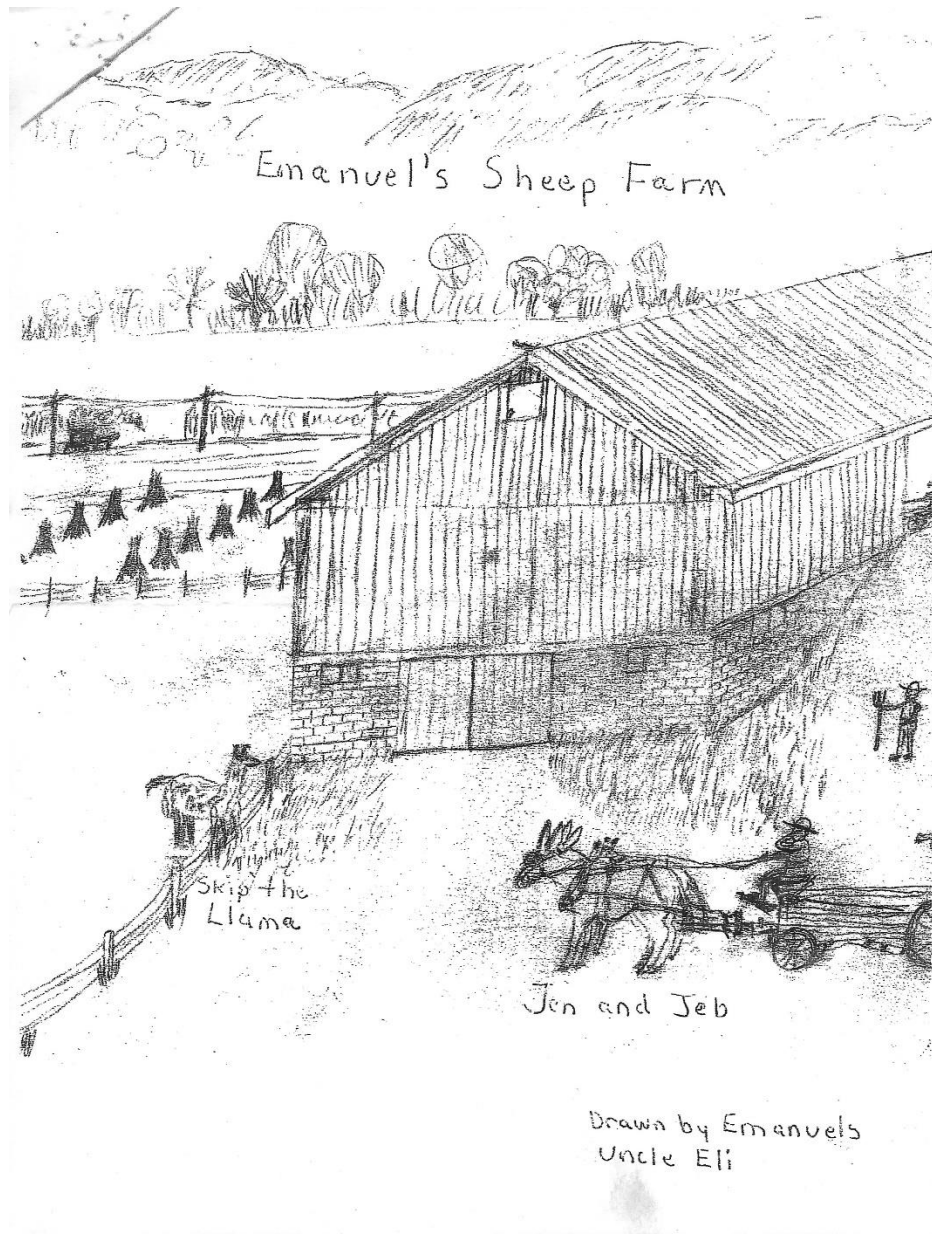 Emanuel's Sheep Farm
Skip the
Llama
Jen and Jeb
Drawn by Emanuels
Uncle Eli